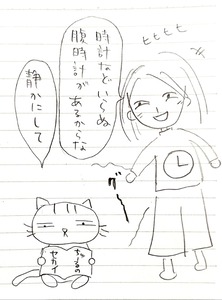 ヒヒヒヒ
時計などいらぬ
腹時計が
あるからな
グー
静かにして
ちゅーるの
セカイ